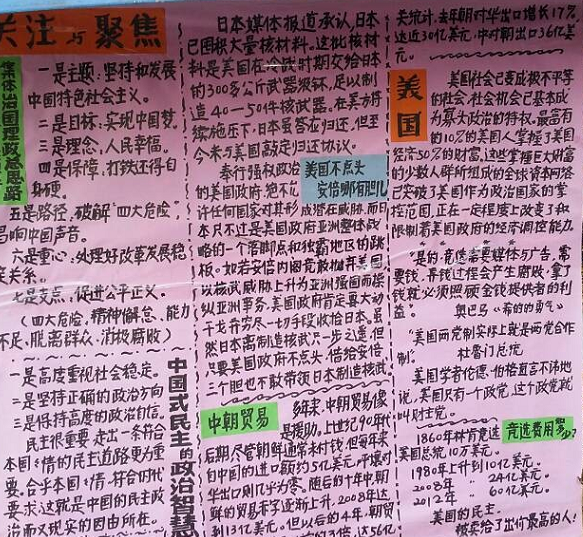 关注与聚焦
集体治国理政总思路
一是主题：坚持和发展
中国特色社会主义。
二是目标：实现中国梦。
三是理念，人民幸福。
四是保障：打铁还得自
身硬。
五是路径，破解"四大危险"，
唱响中国声音。
六是重心：处理好改革发展稳
定关系。
七是支点，促进公平正义。
（四大危险，精神懈怠、能力
不足、脱离群众、消极腐败）
中国式民主的政治智慧
一是高度重视社会稳定。
二是坚持正确的政治方向
三是保持高度的政治自信。
民主很重要，走出一条符合
本国国情的民主道路更为重
要。合乎本国国情，符合时代
要求，这就是中国的民主政
治而又现实的因由所在。
日本媒体报道承认，日本
已囤积大量核材料。这批核材
料是美国在冷战时期交给日本
的300多公斤武器级钚，足以制
造40—50件核武器。在美方持
续施压下，日本虽答应归还，但至
今未与美国敲定归还协议。
美国不点头
安倍哪有胆儿
奉行强权政治
的美国政府，绝不允
许任何国家对其形成潜在威胁，而日
本只不过是美国政府亚洲整体战
略的一个落脚点和独霸地区的跳
板。如若安倍内阁竟敢抛开美国，
以核武威胁上升为亚洲强国而操
纵亚洲事务，美国政府肯定要大动
干戈，夯夯尽一切手段收拾日本。虽
然日本离制造核武只一步之遥，但
只要美国政府不点头，借给安倍
三个胆也不敢带领日本制造核武。
中朝贸易
多年来，中朝贸易像
是援助。上世纪90年代
后期，尽管朝鲜通常未付钱，但每年来
自中国的进口额约5亿美元，平壤对
华出口则几乎为零。随后的十年中，朝
鲜的贸易赤字逐渐上升，2008年达
到13亿美元。但以后的4年，朝贸
关统计，去年朝对华出口增长17%
达近30亿美元，中对朝出口36亿美
元。
美国
美国社会已变成极不平等
的社会，社会机会已基本成
为寡大政治的特权。最富有
的10%的美国人掌握了美国
经济50%的财富，这些掌握巨大财富
的少数人群所组成的全球资本网络
已突破了美国作为政治国家的掌
控范围，正在一定程度上改变了和
限制着美国政府的经济调控能力。
"是的，竞选需要媒体与广告，需
要钱，弄钱过程会产生腐败，拿了
钱就必须照顾金钱提供者的利
益。" 奥巴马《希望的勇气》
"美国两党制实际上就是两党合作
制"。 杜鲁门总统
美国学者伦德·伯格直言不讳地
说，美国只有一个政党，这个政党就
叫财主党。
竞选费用多少？
1860年林肯竞选
美国总统10万美元。
1980年上升到10亿美元。
2008年 〃 24亿美元。
2012年 〃 60亿美元。
美国的民主，
被卖给了出价最高的人！